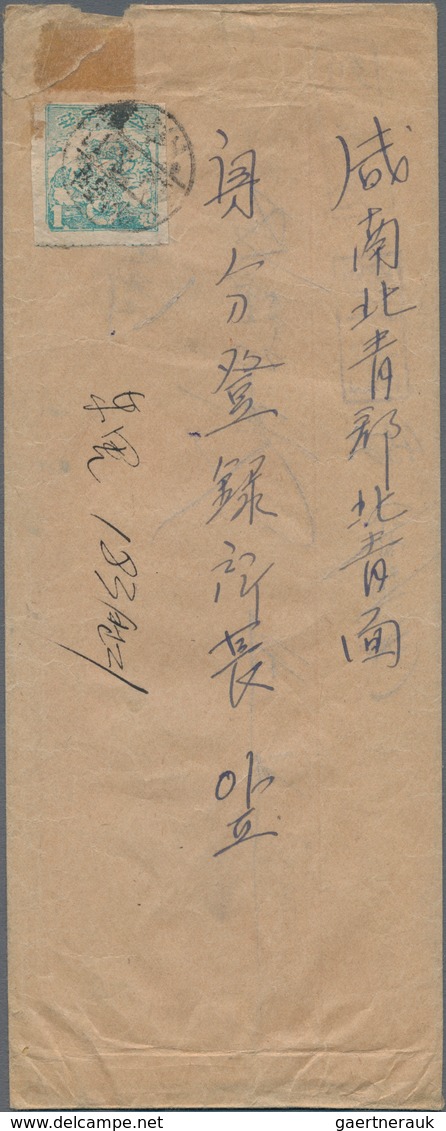 咸南北青郡北青面
身分登錄所長 앞
183
1
www.delcampe.net
gaertnerauk